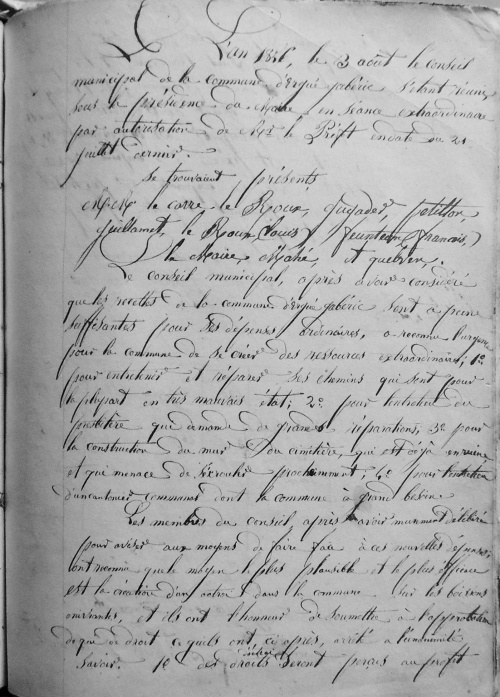 L'an 1856, le 3 août le conseil
municipal de la commune d'Ergué gabéric s'étant réuni
sous la présidence du Maire en séance extraordinaire
par autorisation de Mr le Préft en date du 21
juillet dernier.
Se trouvaient présents
M.M. le corre, le Roux, quéré, pétillon
guillamet, le Roux (Louis) feunteun (francais,)
le Maire Mahé, et
Le conseil municipal, après avoir considéré
que les recettes de la commune d'Ergué gabéric sont à peine
suffisantes pour ses dépenses ordinaires, a reconnu l'urgence
pour la commune de se créer des ressources extraordinaires; 1o
pour entretenir et réparer ses chemins qui sont pour
la plupart en très mauvais état; 2o pour l'entretien du
presbitère qui demande de grandes réparations, 3o pour
la construction du mur du cimetière, qui est déjà en ruine
et qui menace de s'écrouler prochainement; 4o pour l'entretien
d'un cantonier communal dont la commune a grand besoin.
Les membres du conseil, après avoir murement délibéré
pour aviser aux moyens de faire face à ces nouvelles dépenses,
ont reconnu que le moyen le plus plausible et le plus efficace
est la création d'un octroi dans la commune sur les boissons
enivrantes, et ils ont l'honneur de soumettre à l'approbation
de qui de droit ce qu'ils ont, ci après, arrêté à l'unanimité
Savoir. 1o des droits seront perçus au profit